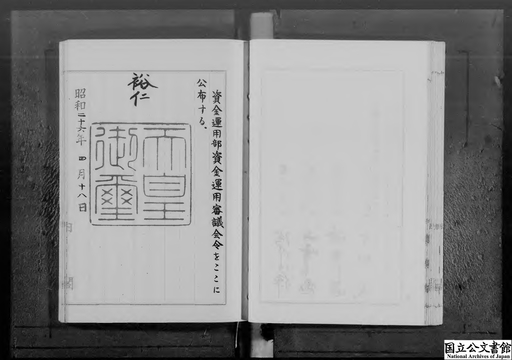 資金運用部資金運用審議会令をここに
公布する。
裕仁
天皇
御璽
昭和二十六年四月十八日
国立公文書館
National Archives of Japan